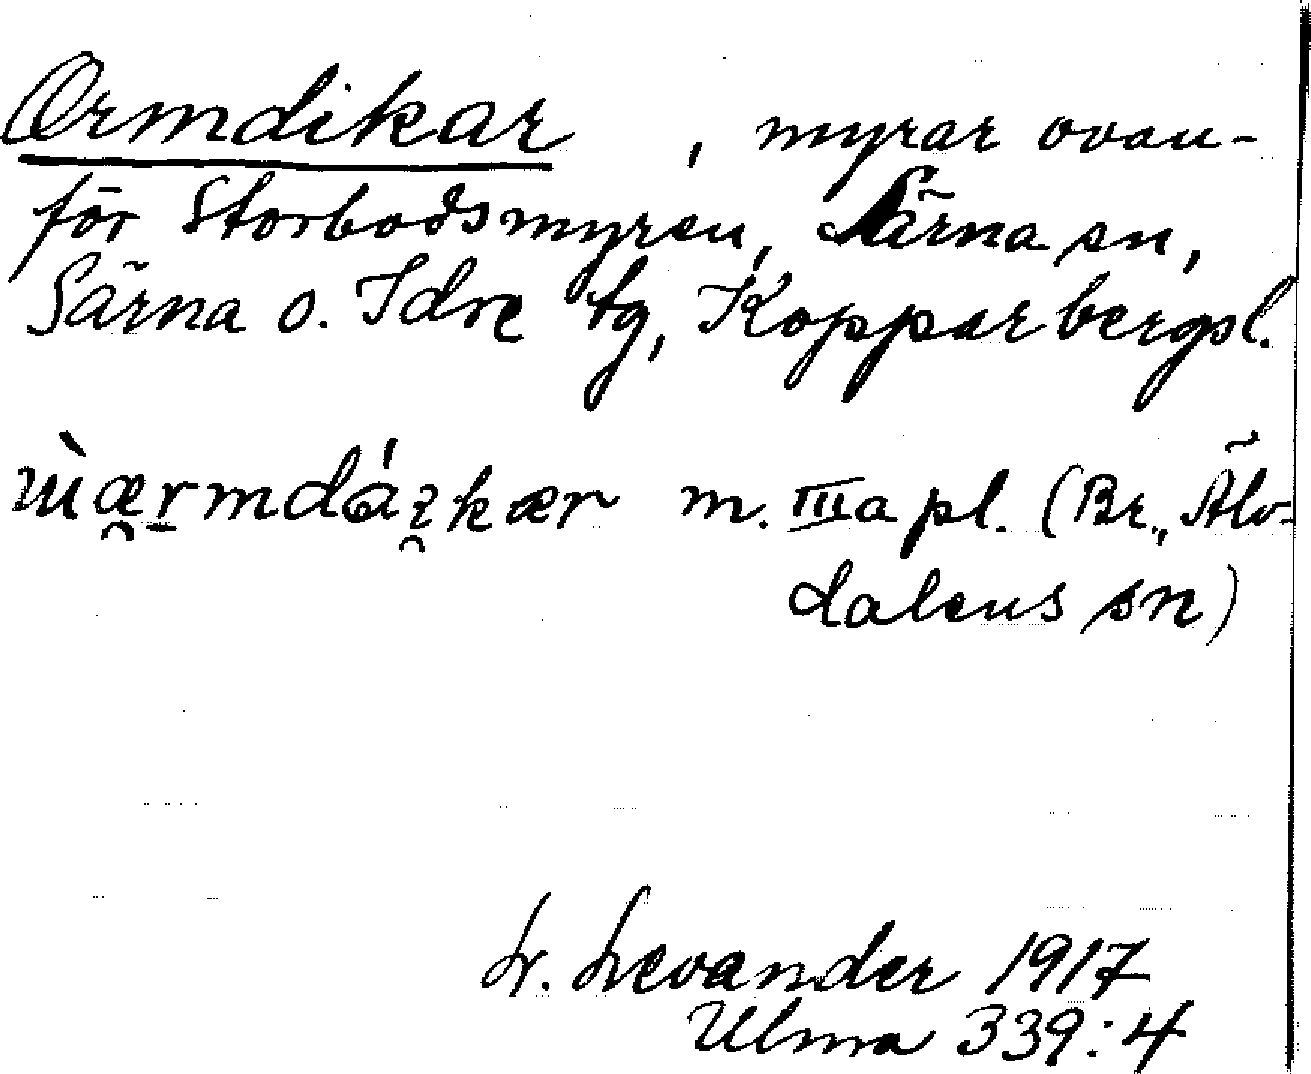 Ormdikar , myrar ovan-
för Storbodsmyren, Särna sn,
Särna o. Idre tg, Kopparbergsl.
m. IIIa pl. (Br., Älv-
dalens sn)
L. Levander 1917
Ulma 339:4